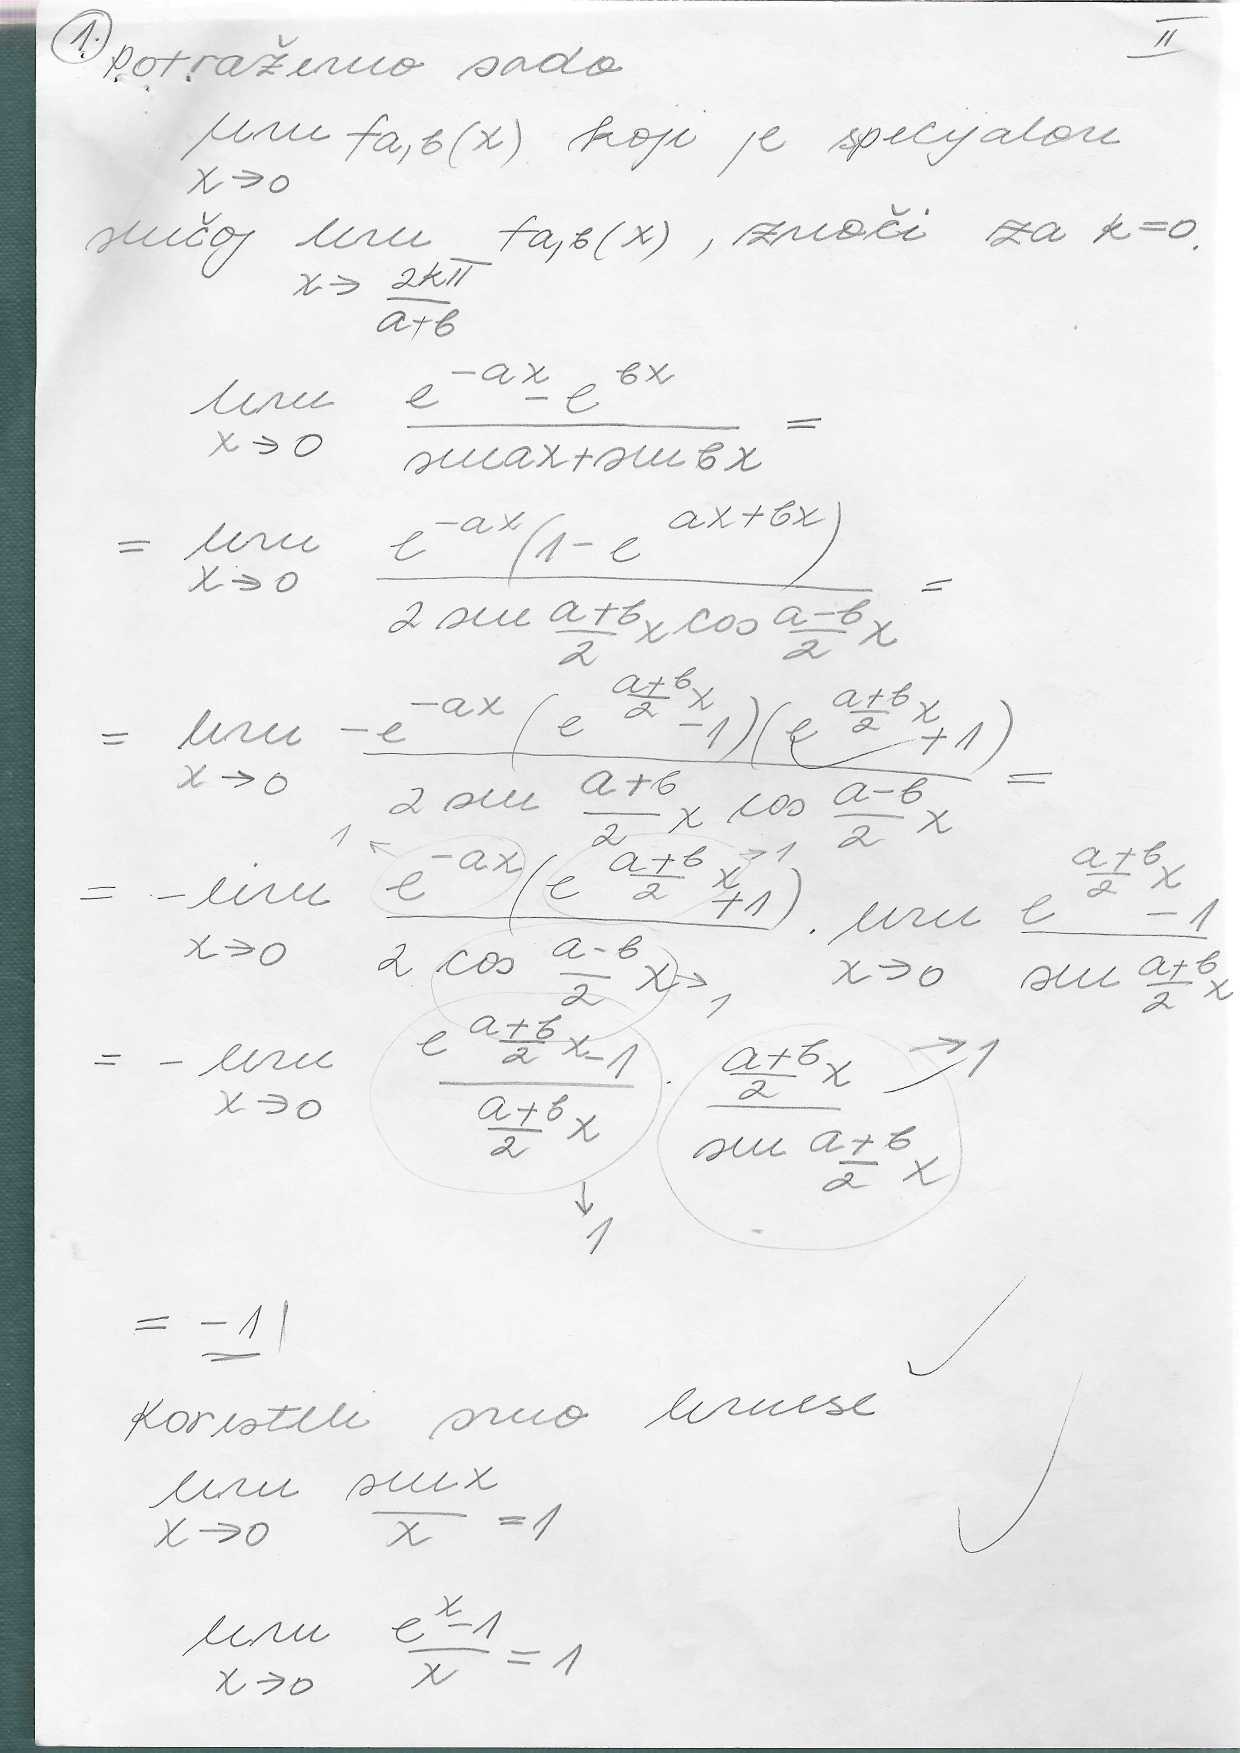 1. II
Potražimo sada
lim f_{a,b}(x) koji je specijalni
x→0
slučaj lim f_{a,b}(x), znači za k=0.
x→ 2kπ/(a+b)
lim_{x→0} (e^{-ax} - e^{bx})/(sin ax + sin bx) =
= lim_{x→0} e^{-ax}(1 - e^{ax+bx})/(2 sin (a+b)/2 x cos (a-b)/2 x) =
= lim_{x→0} -e^{-ax}(e^{(a+b)/2 x} - 1)(e^{(a+b)/2 x} + 1)/(2 sin (a+b)/2 x cos (a-b)/2 x) =
1 ← → 1
= - lim_{x→0} e^{-ax}(e^{(a+b)/2 x} + 1)/(2 cos (a-b)/2 x) · lim_{x→0} (e^{(a+b)/2 x} - 1)/(sin (a+b)/2 x)
→ 1
= - lim_{x→0} (e^{(a+b)/2 x} - 1)/((a+b)/2 x) · ((a+b)/2 x)/(sin (a+b)/2 x) → 1
↓ 1
= -1
Koristili smo limese
lim_{x→0} sin x/x = 1
lim_{x→0} (e^x - 1)/x = 1